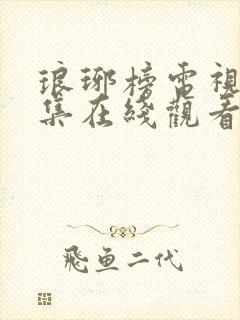 琅琊榜電視
集在綫觀看
飛魚二代